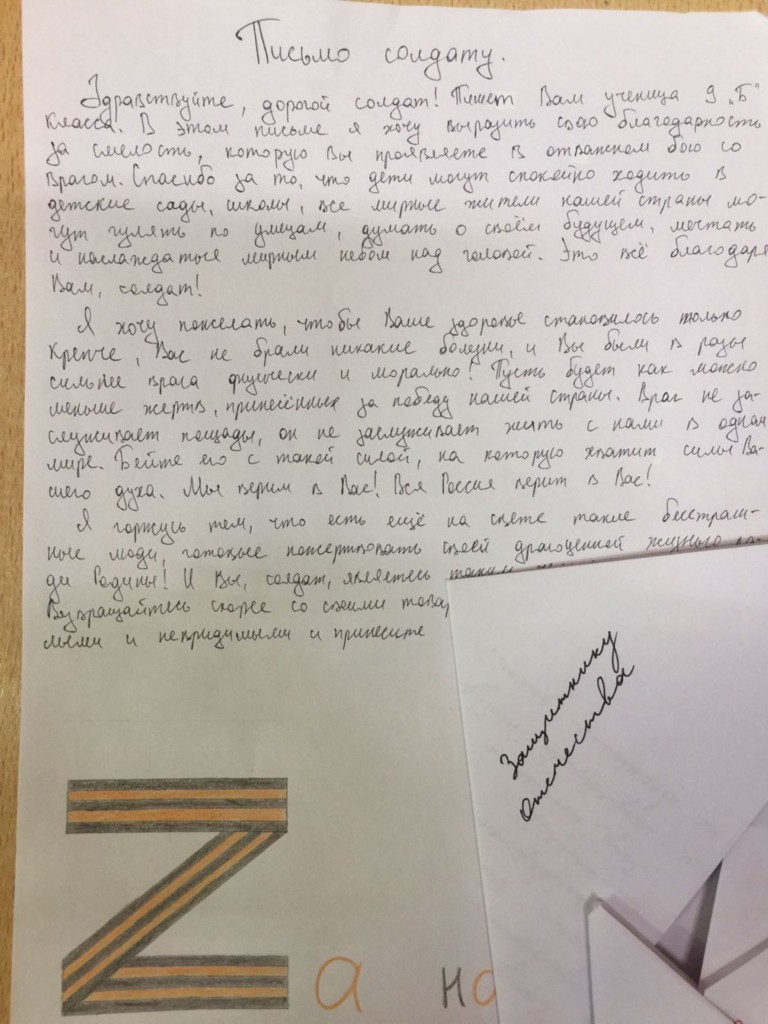 Письмо солдату.
Здравствуйте, дорогой солдат! Пишет Вам ученица 9 „Б"
класса. В этом письме я хочу выразить свою благодарность
за смелость, которую Вы проявляете в отважном бою со
врагом. Спасибо за то, что дети могут спокойно ходить в
детские сады, школы, все мирные жители нашей страны мо-
гут гулять по улицам, думать о своём будущем, мечтать
и наслаждаться мирным небом над головой. Это всё благодаря
Вам, солдат!
Я хочу пожелать, чтобы Ваше здоровье становилось только
крепче, Вас не брали никакие болезни, и Вы были в разы
сильнее врага физически и морально! Пусть будет как можно
меньше жертв, принесённых за победу нашей страны. Враг не за-
служивает пощады, он не заслуживает жить с нами в одном
мире. Бейте его с такой силой, на которую хватит силы Ва-
шего духа. Мы верим в Вас! Вся Россия верит в Вас!
Я горжусь тем, что есть ещё на свете такие бесстраш-
ные люди, готовые пожертвовать своей драгоценной жизнью ра-
ди Родины! И Вы, солдат, являетесь таким
Возвращайтесь скорее со своими товар
и невридимыми и принесите
Защитнику
Отечества
Zа на